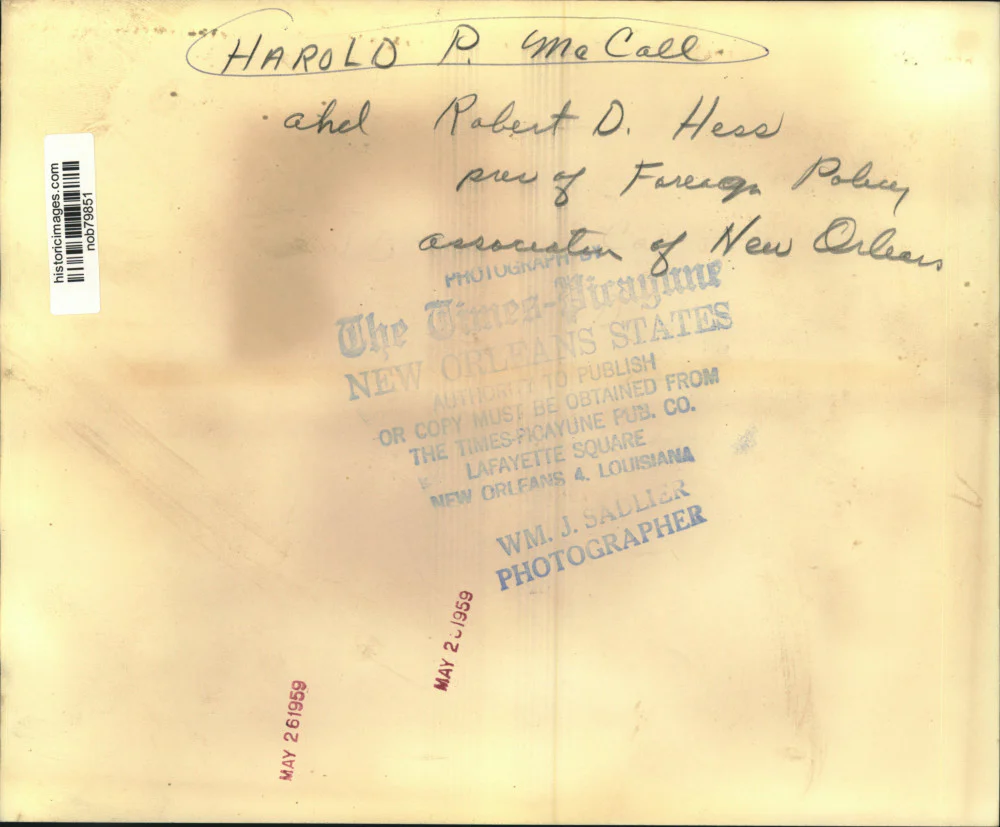 HAROLD P. McCall
and Robert D. Hess
pres of Foreign Policy
association of New Orleans
historicimages.com
nob79851
PHOTOGRAPH BY
The Times-Picayune
NEW ORLEANS STATES
AUTHORITY TO PUBLISH
OR COPY MUST BE OBTAINED FROM
THE TIMES-PICAYUNE PUB. CO.
LAFAYETTE SQUARE
NEW ORLEANS 4, LOUISIANA
WM. J. SADLIER
PHOTOGRAPHER
MAY 2 1959
MAY 261959